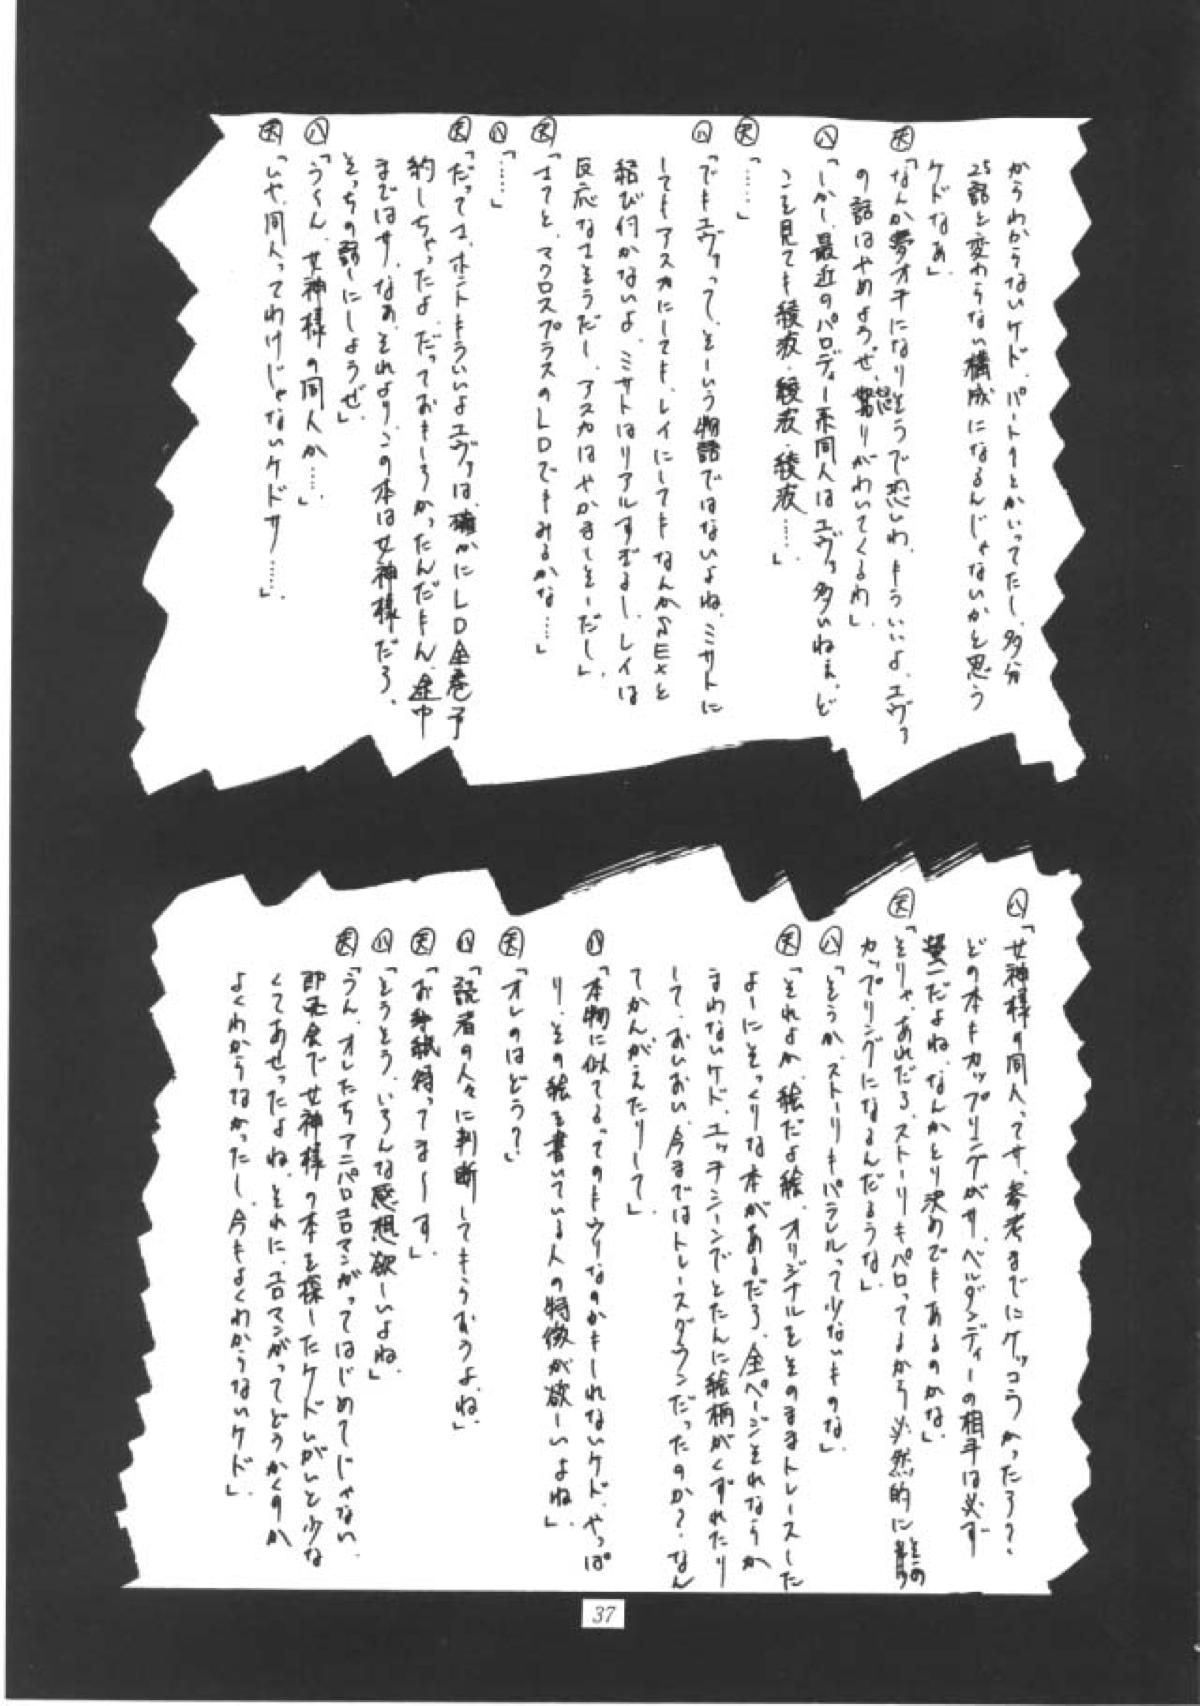 からわからないケド、パート1とかいってたし、多分
25話と変わらない構成になるんじゃないかと思う
ケドなぁ」
天「なんか夢オチになりそうで恐いわ、もういいよ、エヴァ
の話はやめようぜ、怒りがわいてくるわ」
八「しかし、最近のパロディー系同人はエヴァ多いねぇ、ど
こを見ても綾波・綾波・綾波……」
天「……」
八「でもエヴァって、そーいう物語ではないよね、ミサトに
してもアスカにしても、レイにしてもなんかSEXと
結び付かないよ、ミサトはリアルすぎるし、レイは
反応なさそうだし、アスカはやかましそーだし」
天「さてと、マクロスプラスのLDでもみるかな……」
八「……」
天「だってさ、ホントもういいよエヴァは、確かにLD全巻予
約しちゃったよ、だっておもしろかったんだもん、途中
まではサ、なあ、それより、この本は女神様だろ、
そっちの話にしようぜ」
八「うーん、女神様の同人か……」
天「いや、同人ってわけじゃないケドサ……」
八「女神様の同人ってサ、参考までにケッコウかったろ?、
どの本もカップリングがサ、ベルダンディーの相手は必ず
螢一だよね、なんかとり決めでもあるのかな」
天「そりゃ、あれだろ、ストーリーもパロってるから必然的にその
カップリングになるんだろうな」
八「そうか、ストーリーもパラレルって少ないものな」
天「それよか、絵だよ絵、オリジナルをそのままトレースした
よーにそっくりな本があるだろ、全ページそれならか
まわないケド、エッチシーンでとたんに絵柄がくずれたり
して、おいおい、今まではトレースダウンだったのか?、なん
てかんがえたりして」
八「本物に似てるってのもウリなのかもしれないケド、やっぱ
り、その絵を書いている人の特徴が欲しいよね」
天「オレのはどう?」
八「読者の人々に判断してもらおうよ、ね」
天「お手紙待ってま〜す」
八「そうそう、いろんな感想欲しいよね」
天「うん、オレたちアニパロエロマンガってはじめてじゃない、
即売会で女神様の本を探したケド、いがいと少な
くてあせったよね、それに、エロマンガってどうかくのか
よくわからなかったし、今もよくわからないケド」
37